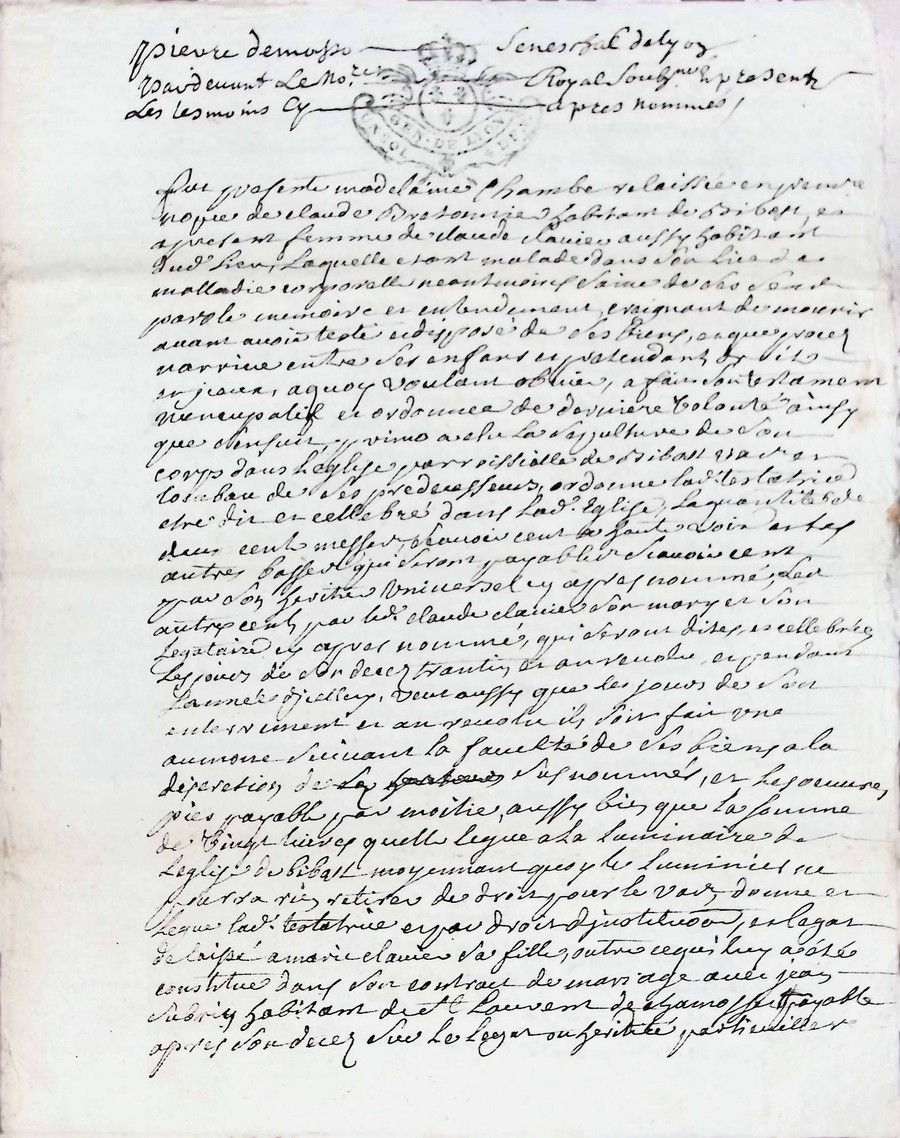 pierre demosso Seneschal de lyon
Pardevant Le No.re Royal Soubz.né & present
Les tesmoins Cy apres nommés
GEN. DE LION
fut presente madelaine Chambe relaissée en premie
nopce de claude Bretonnie habitant de Bibost, et
apresent femme de claude clavier aussy habitant
dud. Lieu, Laquelle etant malade dans son lict de
malladie corporelle neantmoins saine de ses sens
parole memoire et entendement, craignant de mourir
avant avoir testé et disposé de ses biens, et que procez
narrive entre ses enfans et pretendant droits
en iceux, a quoy voulant obvier, a fait son testament
nuncupatif et ordonnce de derniere volonté ainsy
que sensuit, primo a elu la sepulture de son
corps dans L'eglise parroissialle de Bibost et
tombau de ses predecesseurs, ordonne lad. testatrice
etre dit et cellebré dans lad. Eglise, La quantité de
deux cent messes, scavoir cent a haute voix et les
autres basses qui seront payables scavoir cent
par son heritier Universel cy apres nommé, Les
autres cent par led. claude clavier son mary et son
Legataire cy apres nommé, qui seront dites, et cellebrées
Les jours de son decez trantin et an revolu, et pendant
L'année d'icelluy, veut aussy que les jours de son
enterrement et an revolu ils soit fait une
aumone suivant la faculté de ses biens a la
discretion de sus nommés, et Les oeuvres
pies payable par moitie, aussy bien que la somme
de vingt livres quelle legue a La Luminaire de
L'eglise de bibost moyennant quoy le Luminier ne
pourra rien retirer de droit pour le donne et
Legue lad. testatrice et par droit d'justitution, et legat
delaissé a marie clavier sa fille, outre ce qui luy a été
constitué dans son contract de mariage avec jean
Subrin habitant de St Laurent de chamosset payable
apres son decez sur le Legat ou heritié particuillere